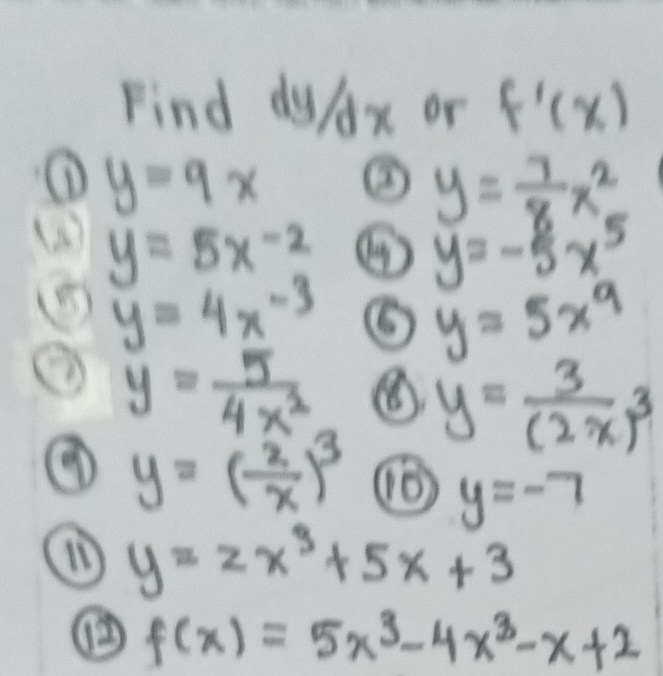 Find dy/dx or f'(x)
① y = 9x ② y = 7/8 x²
y = 5x⁻² ④ y = -5x⁵
⑤ y = 4x⁻³ ⑥ y = 5x⁹
⑦ y = 5/4x² ⑧ y = 3/(2x)³
⑨ y = (2/x)³ ⑩ y = -7
⑪ y = 2x³ + 5x + 3
⑫ f(x) = 5x³ - 4x³ - x + 2